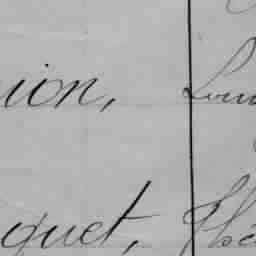 ion, Lou
quet, Thé